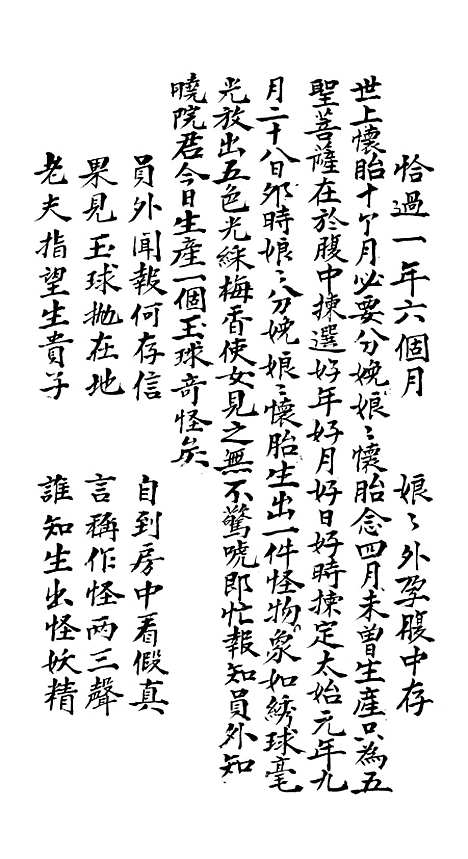 恰過一年六個月　娘〻外孕腹中存
世上懷胎十个月必要分娩娘〻懷胎念四月未曾生產只為五
聖菩薩在於腹中揀選好年好月好日好時揀定太始元年九
月二十八日卯時娘〻分娩娘〻懷胎生出一件怪物象如綉球毫
光放出五色光綵梅香使女見之無不驚唬即忙報知員外知
曉院君今日生產一個玉球奇怪矣
員外聞報何存信　自到房中看假真
果見玉球拋在地　言稱作怪兩三聲
老夫指望生貴子　誰知生出怪妖精